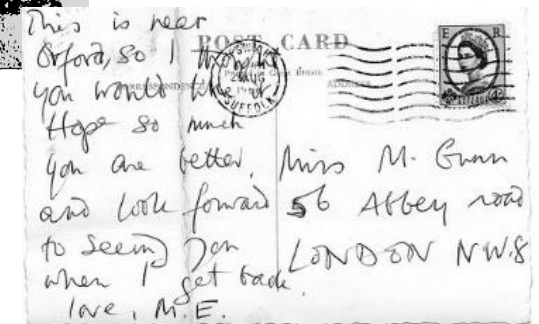 This is near
Orford, so I thought
you would like
Hope so much
you are better,
and look forward
to seeing you
when I get back.
love, M.E.
POST CARD
CORRESPONDENCE
ADDRESS
SUFFOLK
E R
Miss M. Gunn
56 Abbey road
LONDON N.W.8